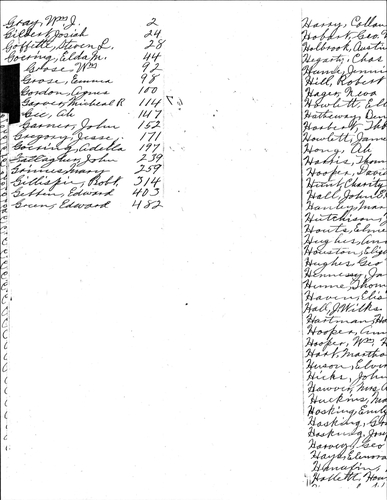 Gray, Wm J. 2
Gilbert, Josiah 24
Goffitt, Steven L. 28
Goering, Elda M. 44
Grose Wm 92
Grose, Emma 98
Gordon, Cyrus 100
Garver, Micheal R 114
Gee, Ah 147
Garner, John 152
Gregory, Jesse, 171
Goering, Adella 197
Gallagher, John 239
Gannus, Mary 259
Gillispie, Robt. 314
Gibbins, Edward 403
Green, Edward 482
Harry,
Hobert, Geo.
Holbrook, Austin
Hegarty, Chas
Hume, Jennie
Hill, Robert
Hager, Neva
Howlett,
Hatheway,
Howlett, James
Hong, Ah
Harris, Thom
Hooper, David
Hunt, Charity
Hall, John
Handy, Mar
Hutchison,
Houts, Elme
Hughes,
Houston,
Hughes Geo
Hennessy, Ja
Hume, Thom
Haven, Elis
Hall, J. Wilks
Hartman, Ha
Hooper,
Hooper, Wm.
Hart, Martha
Huson, Elvir
Hicks, John
Hawver, Mrs. A
Huckins, Ma
Hosking, Emily
Hosking,
Hosking, Jos
Harvey, Geo
Hays, Elenora
Hanafin,
Hallett,